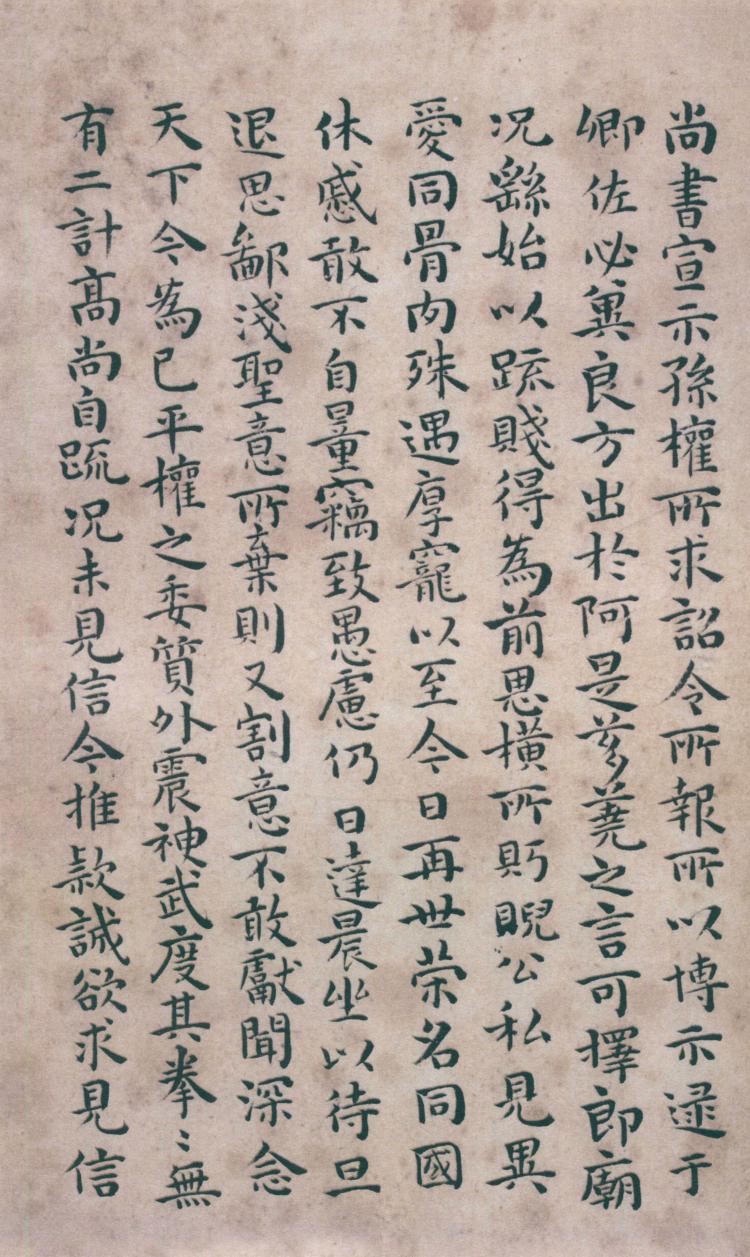 尚書宣示孫權所求詔令所報所以博示逮于
卿佐必冀良方出於阿是芻蕘之言可擇郎廟
況繇始以疏賤得為前恩橫所眄睨公私見異
愛同骨肉殊遇厚寵以至今日再世荣名同國
休慼敢不自量竊致愚慮仍日達晨坐以待旦
退思鄙淺聖意所棄則又割意不敢獻聞深念
天下今為已平權之委質外震神武度其拳〻無
有二計高尚自疏況未見信今推款誠欲求見信